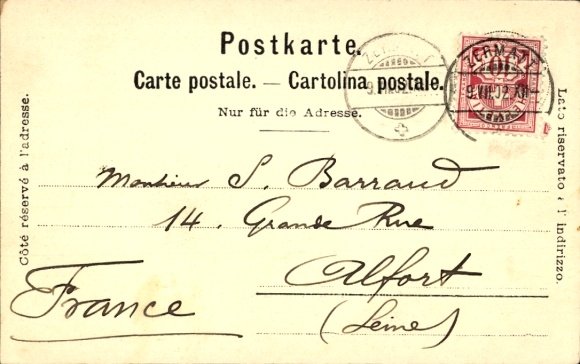 Postkarte.
Carte postale. — Cartolina postale.
Nur für die Adresse.
Côté réservé à l'adresse.
Lato riservato a l' indirizzo.
ZERMATT
9.VII.02.
ZERMATT
9.VII.02.XII
10
Monsieur S. Barraud
14. Grande Rue
Alfort
(Seine)
France